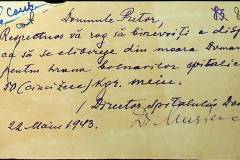 Domnule Pretor,
Respectuos vă rog să binevoiți a dispu
ca să se elibereze din moara
pentru hrana bolnavilor spitalic
50 (cincizeci) kgr. meiu.
Director spitalului
22 Maiu 1943.